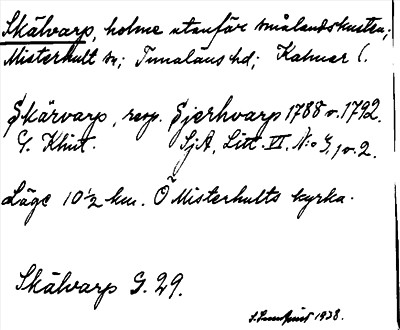 Skälvarp, holme utanför smålandskusten;
Misterhult sn; Tunaläns hd; Kalmar l.
Skärvarp, resp. Sjerhvarp 1788 o. 1792.
G. Klint. SjA, Litt. VI. No 3, 1 o. 2.
Läge 10 1/2 km. Ö Misterhults kyrka.
Skälvarp G. 29.
1928.